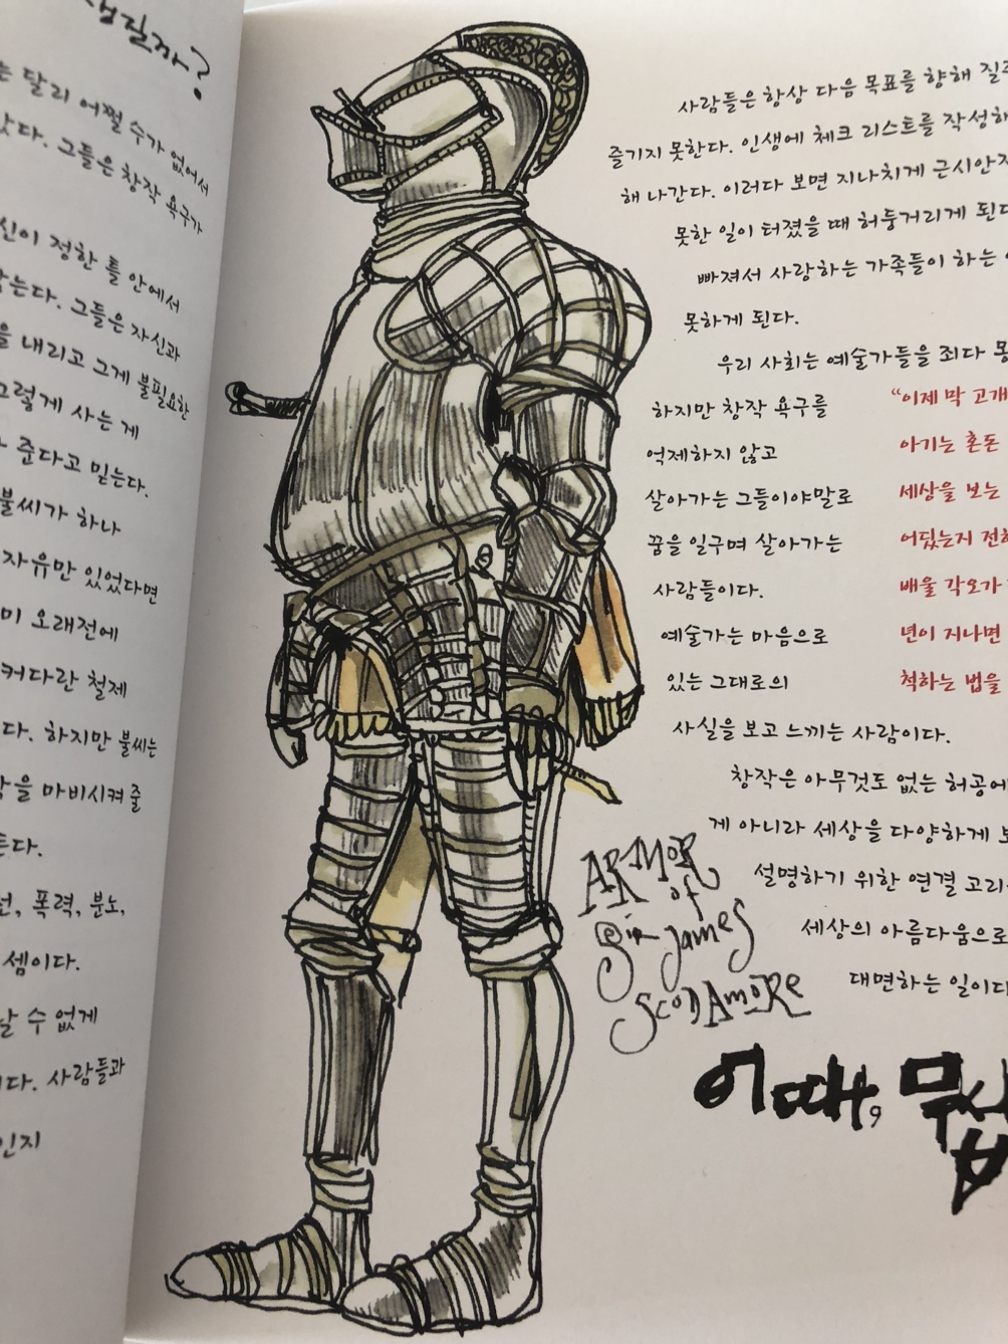 생길까?
달리 어쩔 수가 없어서
그들은 창작 욕구가
정한 틀 안에서
그들은 자신과
내리고 그게 불필요한
그렇게 사는 게
준다고 믿는다.
불씨가 하나
자유만 있었다면
오래전에
커다란 철제
다. 하지만 불씨는
마비시켜 줄
폭력, 분노,
셈이다.
수 없게
사람들과
인지
사람들은 항상 다음 목표를 향해
즐기지 못한다. 인생에 체크 리스트를
해 나간다. 이러다 보면 지나치게
못한 일이 터졌을 때 허둥거리게 된다
빠져서 사랑하는 가족들이 하는
못하게 된다.
우리 사회는 예술가들을 죄다
하지만 창작 욕구를
억제하지 않고
살아가는 그들이야말로
꿈을 일구며 살아가는
사람들이다.
예술가는 마음으로
있는 그대로의
사실을 보고 느끼는 사람이다.
"이제 막
아기는 혼돈
세상을 보는
어딨는지
배울 각오가
년이 지나면
척하는 법을
창작은 아무것도 없는 허공에
게 아니라 세상을 다양하게
설명하기 위한 연결
세상의 아름다움으로
대면하는 일이다
ARMOR
of
Sir James
SCODAMORE
어때,